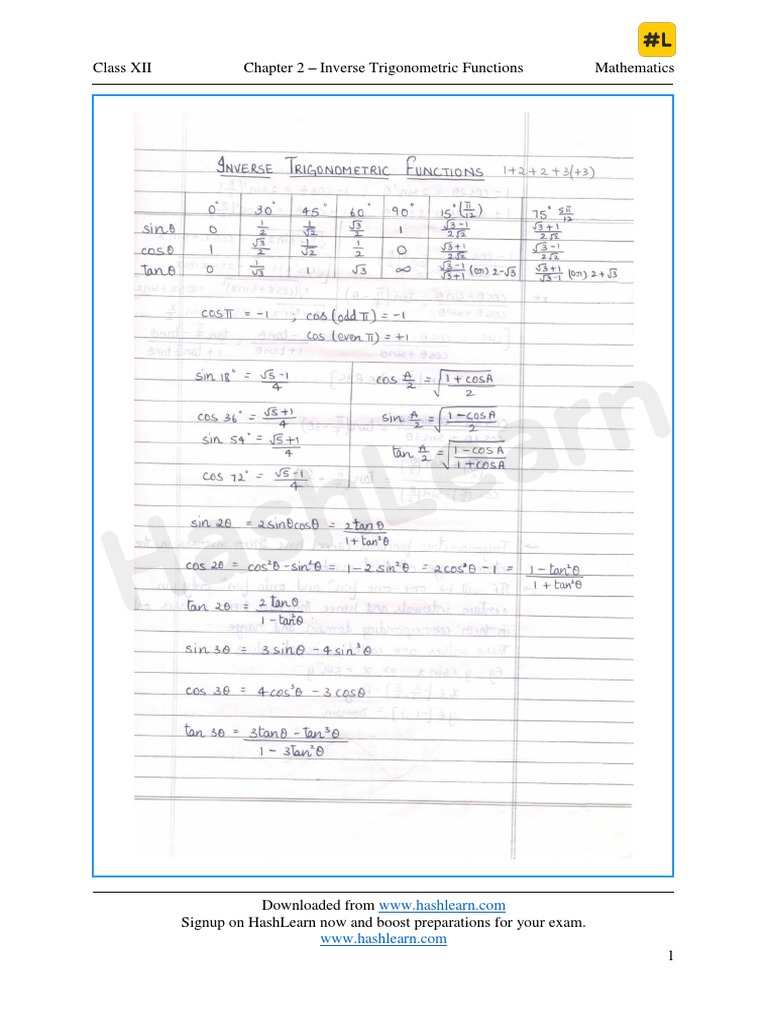 #L
Class XII Chapter 2 – Inverse Trigonometric Functions Mathematics
INVERSE TRIGONOMETRIC FUNCTIONS 1+2+2+3(+3)
0° 30° 45° 60° 90° 15° (π/12) 75° 5π/12
sinθ 0 1/2 1/√2 √3/2 1 √3-1/2√2 √3+1/2√2
cosθ 1 √3/2 1/√2 1/2 0 √3+1/2√2 √3-1/2√2
tanθ 0 1/√3 1 √3 ∞ √3-1/√3+1 (or) 2-√3 √3+1/√3-1 (or) 2+√3
cosπ = -1 ; cos(odd π) = -1
cos (even π) = +1
sin 18° = √5-1/4 cos A/2 = √(1+cosA/2)
cos 36° = √5+1/4 sin A/2 = √(1-cosA/2)
sin 54° = √5+1/4 tan A/2 = √(1-cosA/1+cosA)
cos 72° = √5-1/4
sin 2θ = 2sinθcosθ = 2tanθ/1+tan²θ
cos 2θ = cos²θ-sin²θ = 1-2sin²θ = 2cos²θ-1 = 1-tan²θ/1+tan²θ
tan 2θ = 2tanθ/1-tan²θ
sin 3θ = 3sinθ-4sin³θ
cos 3θ = 4cos³θ-3cosθ
tan 3θ = 3tanθ-tan³θ/1-3tan²θ
HashLearn
Downloaded from www.hashlearn.com
Signup on HashLearn now and boost preparations for your exam.
www.hashlearn.com
1